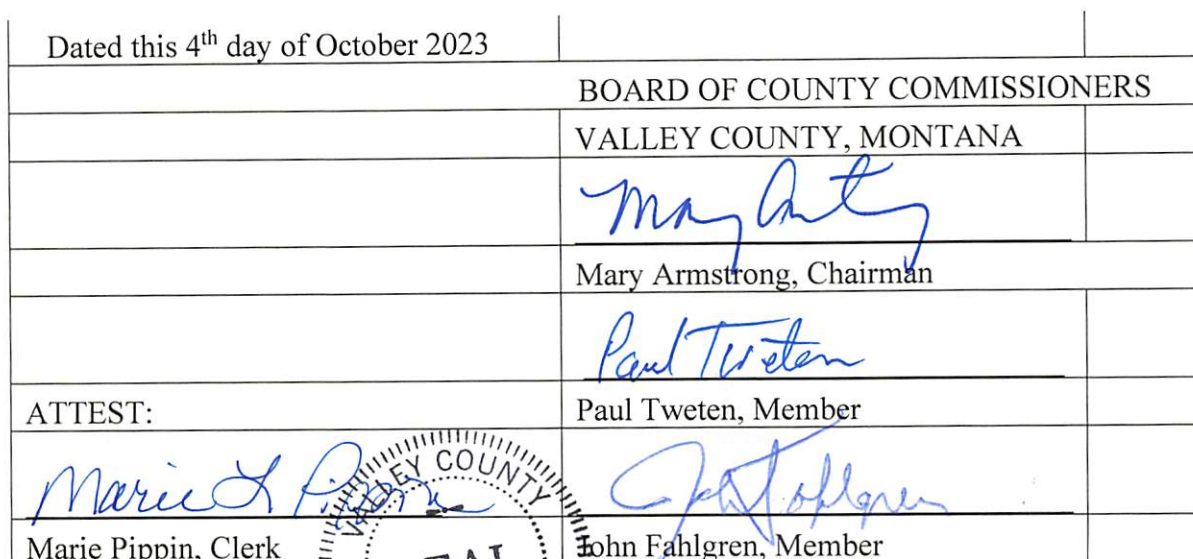 Dated this 4th day of October 2023
BOARD OF COUNTY COMMISSIONERS
VALLEY COUNTY, MONTANA
Mary Armstrong, Chairman
Paul Tweten
ATTEST:
Paul Tweten, Member
Marie L Pippin
VALLEY COUNTY
John Fahlgren
Marie Pippin, Clerk
John Fahlgren, Member